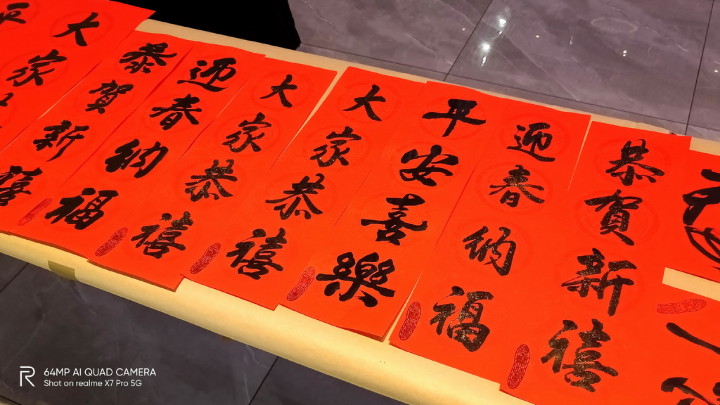 大家
恭賀新禧
迎春納福
大家恭禧
大家恭禧
平安喜樂
迎春納福
恭賀新禧
64MP AI QUAD CAMERA
Shot on realme X7 Pro 5G